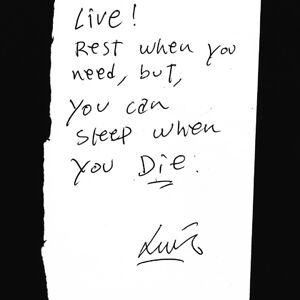 Live!
Rest when you
need, but,
you can
sleep when
you Die.